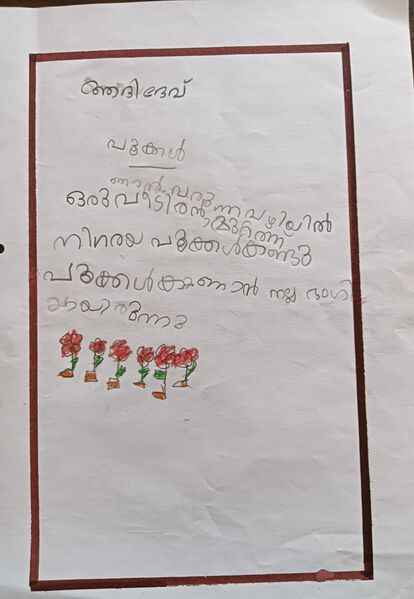 ആദിദേവ്
പൂക്കൾ
ഞാൻ വരുന്ന വഴിയിൽ
ഒരു വീടിൻ്റെ മുറ്റത്ത്
നിറയെ പൂക്കൾകണ്ടു
പൂക്കൾകാണാൻ നല്ല ഭംഗി
യായിരുന്നു